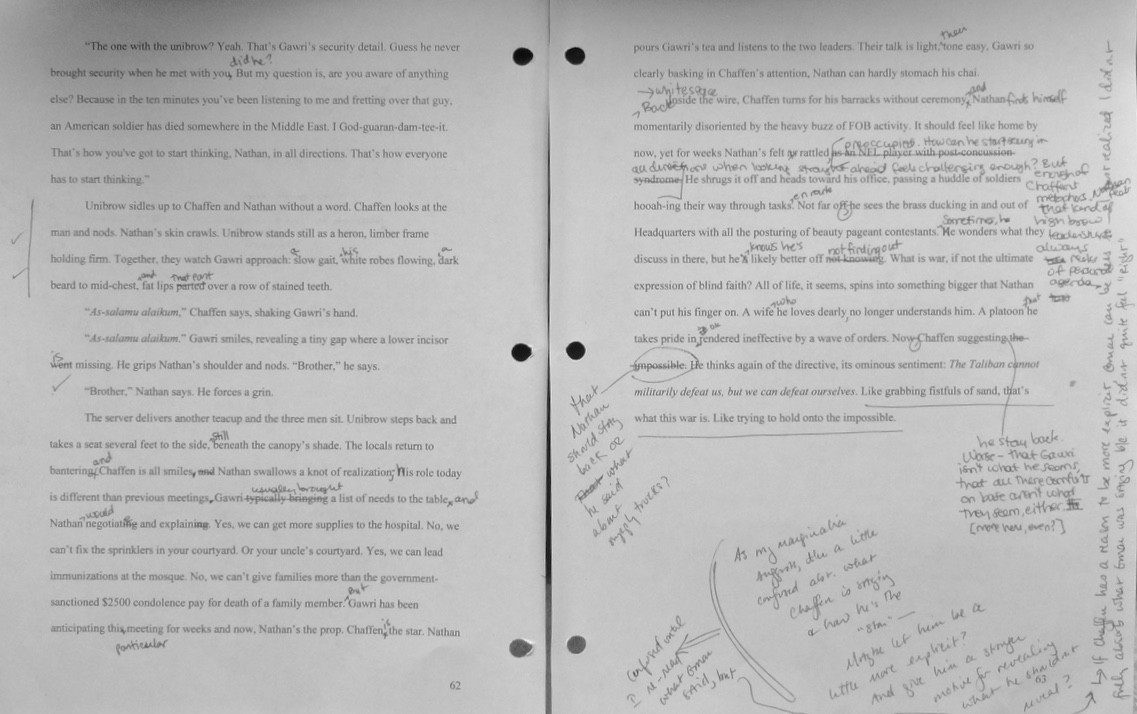 "The one with the unibrow? Yeah. That's Gawri's security detail. Guess he never
did he?
brought security when he met with you, But my question is, are you aware of anything
else? Because in the ten minutes you've been listening to me and fretting over that guy,
an American soldier has died somewhere in the Middle East. I God-guaran-dam-tee-it.
That's how you've got to start thinking, Nathan, in all directions. That's how everyone
has to start thinking."
Unibrow sidles up to Chaffen and Nathan without a word. Chaffen looks at the
man and nods. Nathan's skin crawls. Unibrow stands still as a heron, limber frame
a his a
holding firm. Together, they watch Gawri approach: slow gait, white robes flowing, dark
and that part
beard to mid-chest, fat lips parted over a row of stained teeth.
"As-salamu alaikum," Chaffen says, shaking Gawri's hand.
"As-salamu alaikum." Gawri smiles, revealing a tiny gap where a lower incisor
is
went missing. He grips Nathan's shoulder and nods. "Brother," he says.
"Brother," Nathan says. He forces a grin.
The server delivers another teacup and the three men sit. Unibrow steps back and
still
takes a seat several feet to the side, beneath the canopy's shade. The locals return to
and
bantering, Chaffen is all smiles, and Nathan swallows a knot of realization; his role today
usually brought
is different than previous meetings, Gawri typically bringing a list of needs to the table, and
would
Nathan negotiating and explaining. Yes, we can get more supplies to the hospital. No, we
can't fix the sprinklers in your courtyard. Or your uncle's courtyard. Yes, we can lead
immunizations at the mosque. No, we can't give families more than the government-
but
sanctioned $2500 condolence pay for death of a family member. Gawri has been
is
anticipating this meeting for weeks and now, Nathan's the prop. Chaffen, the star. Nathan
particular
62
their
pours Gawri's tea and listens to the two leaders. Their talk is light, tone easy, Gawri so
clearly basking in Chaffen's attention, Nathan can hardly stomach his chai.
→ whitespace
Back and finds himself
Inside the wire, Chaffen turns for his barracks without ceremony. Nathan
momentarily disoriented by the heavy buzz of FOB activity. It should feel like home by
preoccupied. How can he start seeing in
now, yet for weeks Nathan's felt as rattled as an NFL player with post-concussion
all directions when looking straight ahead feels challenging enough? But
syndrome. He shrugs it off and heads toward his office, passing a huddle of soldiers
en route
hooah-ing their way through tasks. Not far off he sees the brass ducking in and out of
enough of
Chaffen's
metaphors, Nathan
that kind of
high brow
leadership
always
risks
of personal
agenda.
Sometimes, he
Headquarters with all the posturing of beauty pageant contestants. He wonders what they
knows he's not finding out
discuss in there, but he's likely better off not knowing. What is war, if not the ultimate
expression of blind faith? All of life, it seems, spins into something bigger that Nathan
who that
can't put his finger on. A wife he loves dearly, no longer understands him. A platoon he
takes pride in, rendered ineffective by a wave of orders. Now Chaffen suggesting the
impossible. He thinks again of the directive, its ominous sentiment: The Taliban cannot
militarily defeat us, but we can defeat ourselves. Like grabbing fistfuls of sand, that's
what this war is. Like trying to hold onto the impossible.
that
Nathan
should stay
back or
what
he said
about
supply trucks?
he stay back.
Worse – that Gawri
isn't what he seems,
that all these comforts
on base aren't what
they seem, either
[more here, even?]
As my marginalia
suggests, I'm a little
confused abt. what
Chaffen is saying
& how he's the
"star" —
Maybe let him be a
little more explicit?
And give him a stronger
motive for revealing
what he shouldn't
reveal?
Confused until
I re-read
what Omar
said, but
↳ If Chaffen has a reason to be more explicit Omar can be less realized I didn't
fully absorb what Omar was saying b/c it didn't quite feel "Right"